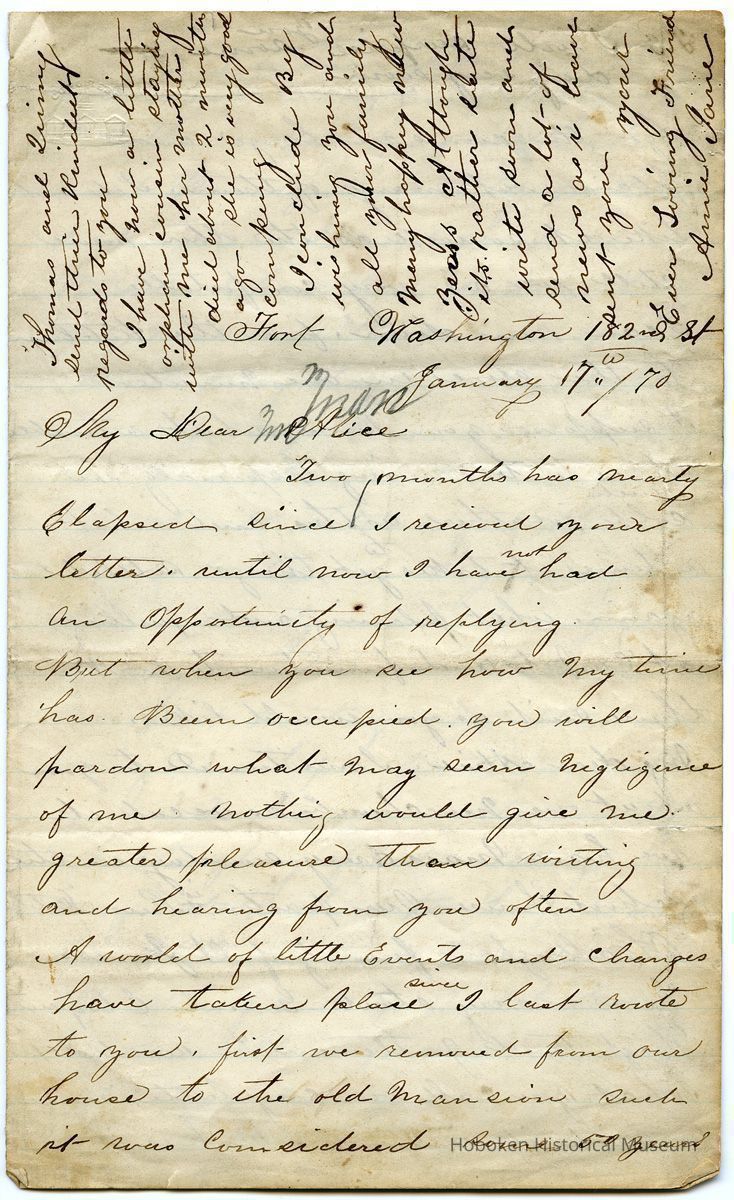 Fort Washington 182nd St
January 17th / 70
My Dear Alice
Two months has nearly
Elapsed since I recieved your
letter. until now I have not had
an Opportunity of replying.
But when you see how my time
has. Been occupied. you will
pardon what may seem negligence
of me. nothing would give me
greater pleasure than writing
and hearing from you often
A world of little Events and changes
have taken place since I last wrote
to you. first we removed from our
house to the old Mansion such
it was Considered some 50 years
Thomas and Jimmy
send their kindest
regards to you
I have now a little
orphan cousin staying
with me her mother
died about 2 months
ago she is very good
company
I conclude By
wishing you and
all your family
many happy new
Years Although
its rather late
write soon and
send a lot of
news as I have
sent you your
Ever Loving Friend
Annie Jane
Hoboken Historical Museum